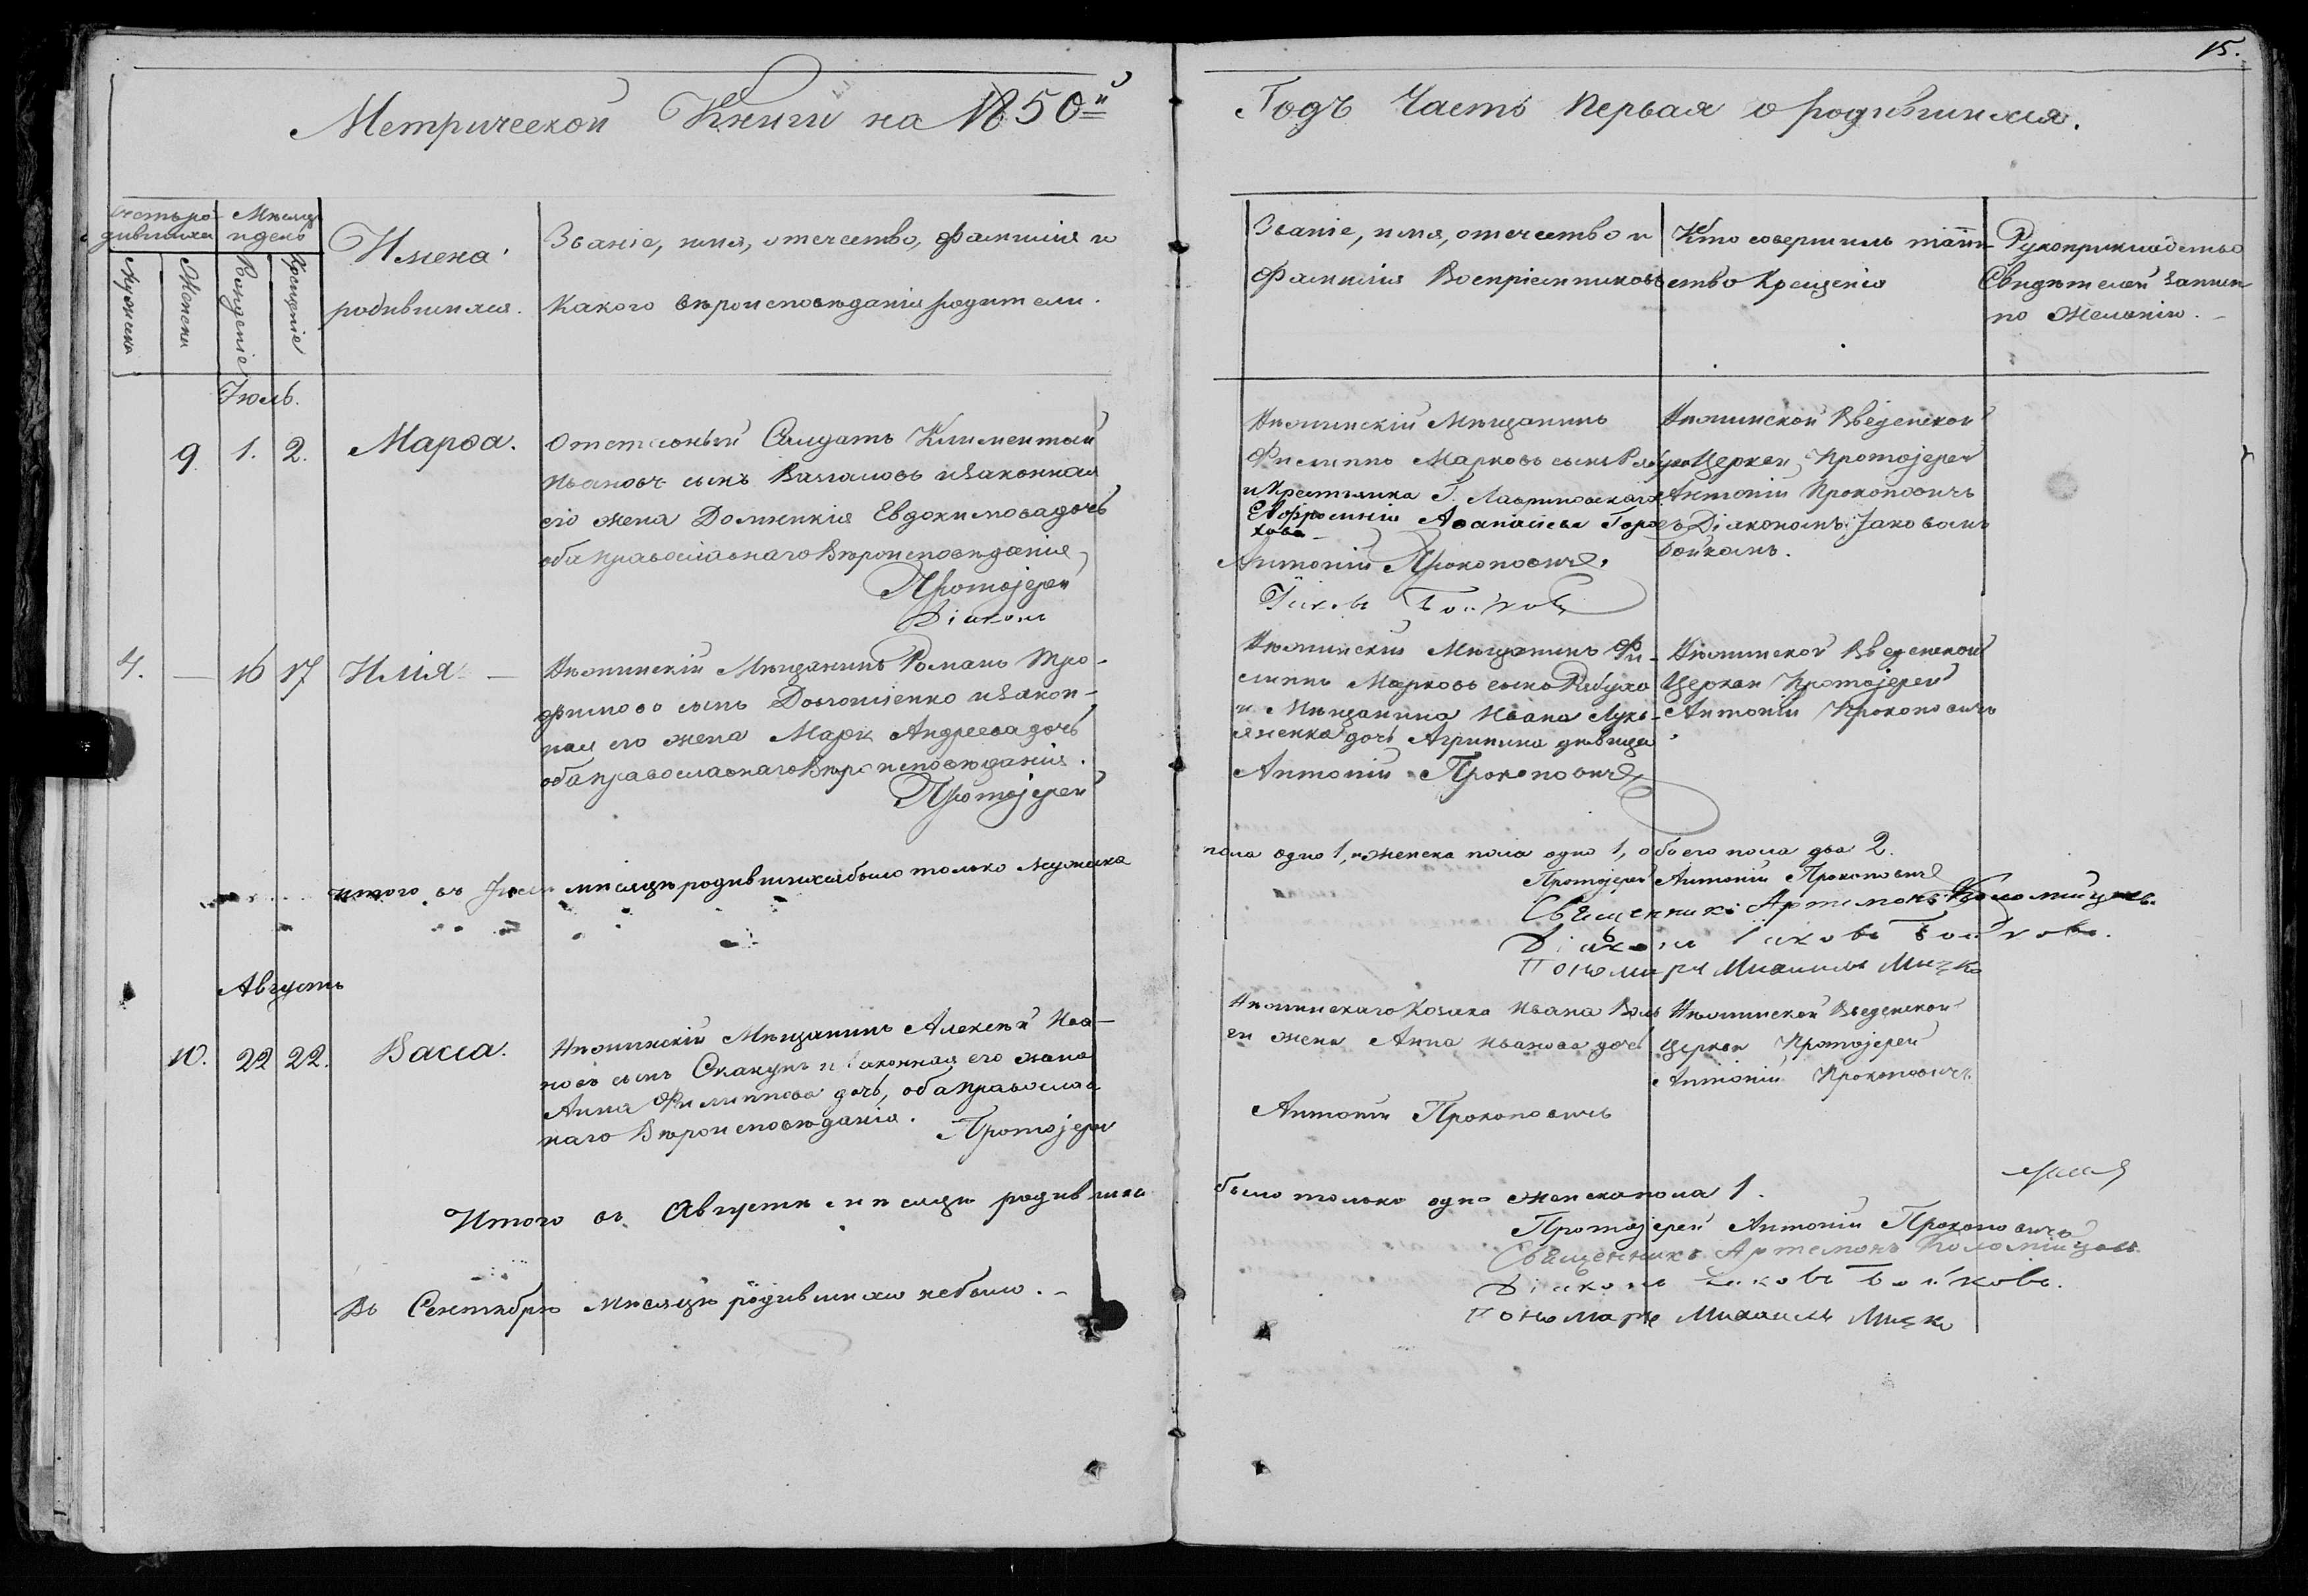 15.
Метрической Книги на 1850й
Годъ Часть Первая о родившихся.
Счетъ ро-
дившихся
Мужеска
Женска
Мѣсяцъ
и день
Рожденіе
Крещеніе
Имена
родившихся.
Званіе, имя, отечество, Фамилія и
Какого вѣроисповѣданія родители.
Званіе, имя, отечество и
Фамилія Воспріемниковъ
Кто совершилъ таин-
ство Крещенія
Рукоприкладство
Свидѣтелей записи
по Желанію.
Іюль.
9. 1. 2. Марѳа.
Отставный Салдатъ Климентий
Ивановъ сынъ и законная
его жена Домникія Евдокимова дочь
оба православнаго Вѣроисповѣданія,
Протоіерей
Діаконъ
Нѣжинскій Мѣщанинъ
Филиппъ Марковъ сынъ Рябуха
и Крестьянка Г.
Евфросинія Аѳанасіева Горо-
хова
Антоній Прокоповичъ.
Іаковъ Бойковъ
Нѣжинской Введенской
Церкви, Протоіерей
Антоній Прокоповичъ
съ Діакономъ Іаковомъ
Бойкомъ.
4. — 16 17 Илія —
Нѣжинскій Мѣщанинъ Романъ Тро-
фимовъ сынъ и закон-
ная его жена Марѳ Андреева дочь
оба православнаго Вѣроисповѣданія.
Протоіерей
Нѣжинскій Мѣщанинъ Фи-
липпъ Марковъ сынъ Рябуха
и Мѣщанина Ивана Лукь-
яненка дочь Агрипина дѣвица
Антоній Прокоповичъ
Нѣжинской Введенской
Церкви Протоіерей
Антоній Прокоповичъ
Итого въ Іюлѣ мѣсяцѣ родившихся было только Мужеска
пола одно 1, и женска пола одно 1, обоего пола два 2.
Протоіерей Антоній Прокоповичъ
Священникъ Артемонъ Коломійцевъ.
Діаконъ Іаковъ Бойковъ.
Пономарь Михаилъ
Августъ
10. 22 22. Васса.
Нѣжинскій Мѣщанинъ Алексѣй Ива-
новъ сынъ Скакунъ и законная его жена
Анна Филиппова дочь, оба православ
наго Вѣроисповѣданія. Протоіерей
Нѣжинскаго Козака Ивана
жена Анна Иванова дочь
Антоній Прокоповичъ
Нѣжинской Введенской
Церкви Протоіерей
Антоній Прокоповичъ.
Итого въ Августѣ мѣсяцѣ родившихся
было только одно женска пола 1.
Протоіерей Антоній Прокоповичъ
Священникъ Артемонъ Коломійцевъ.
Діаконъ Іаковъ Бойковъ.
Пономарь Михаилъ
Въ Сентябрѣ мѣсяцѣ родившихся небыло.